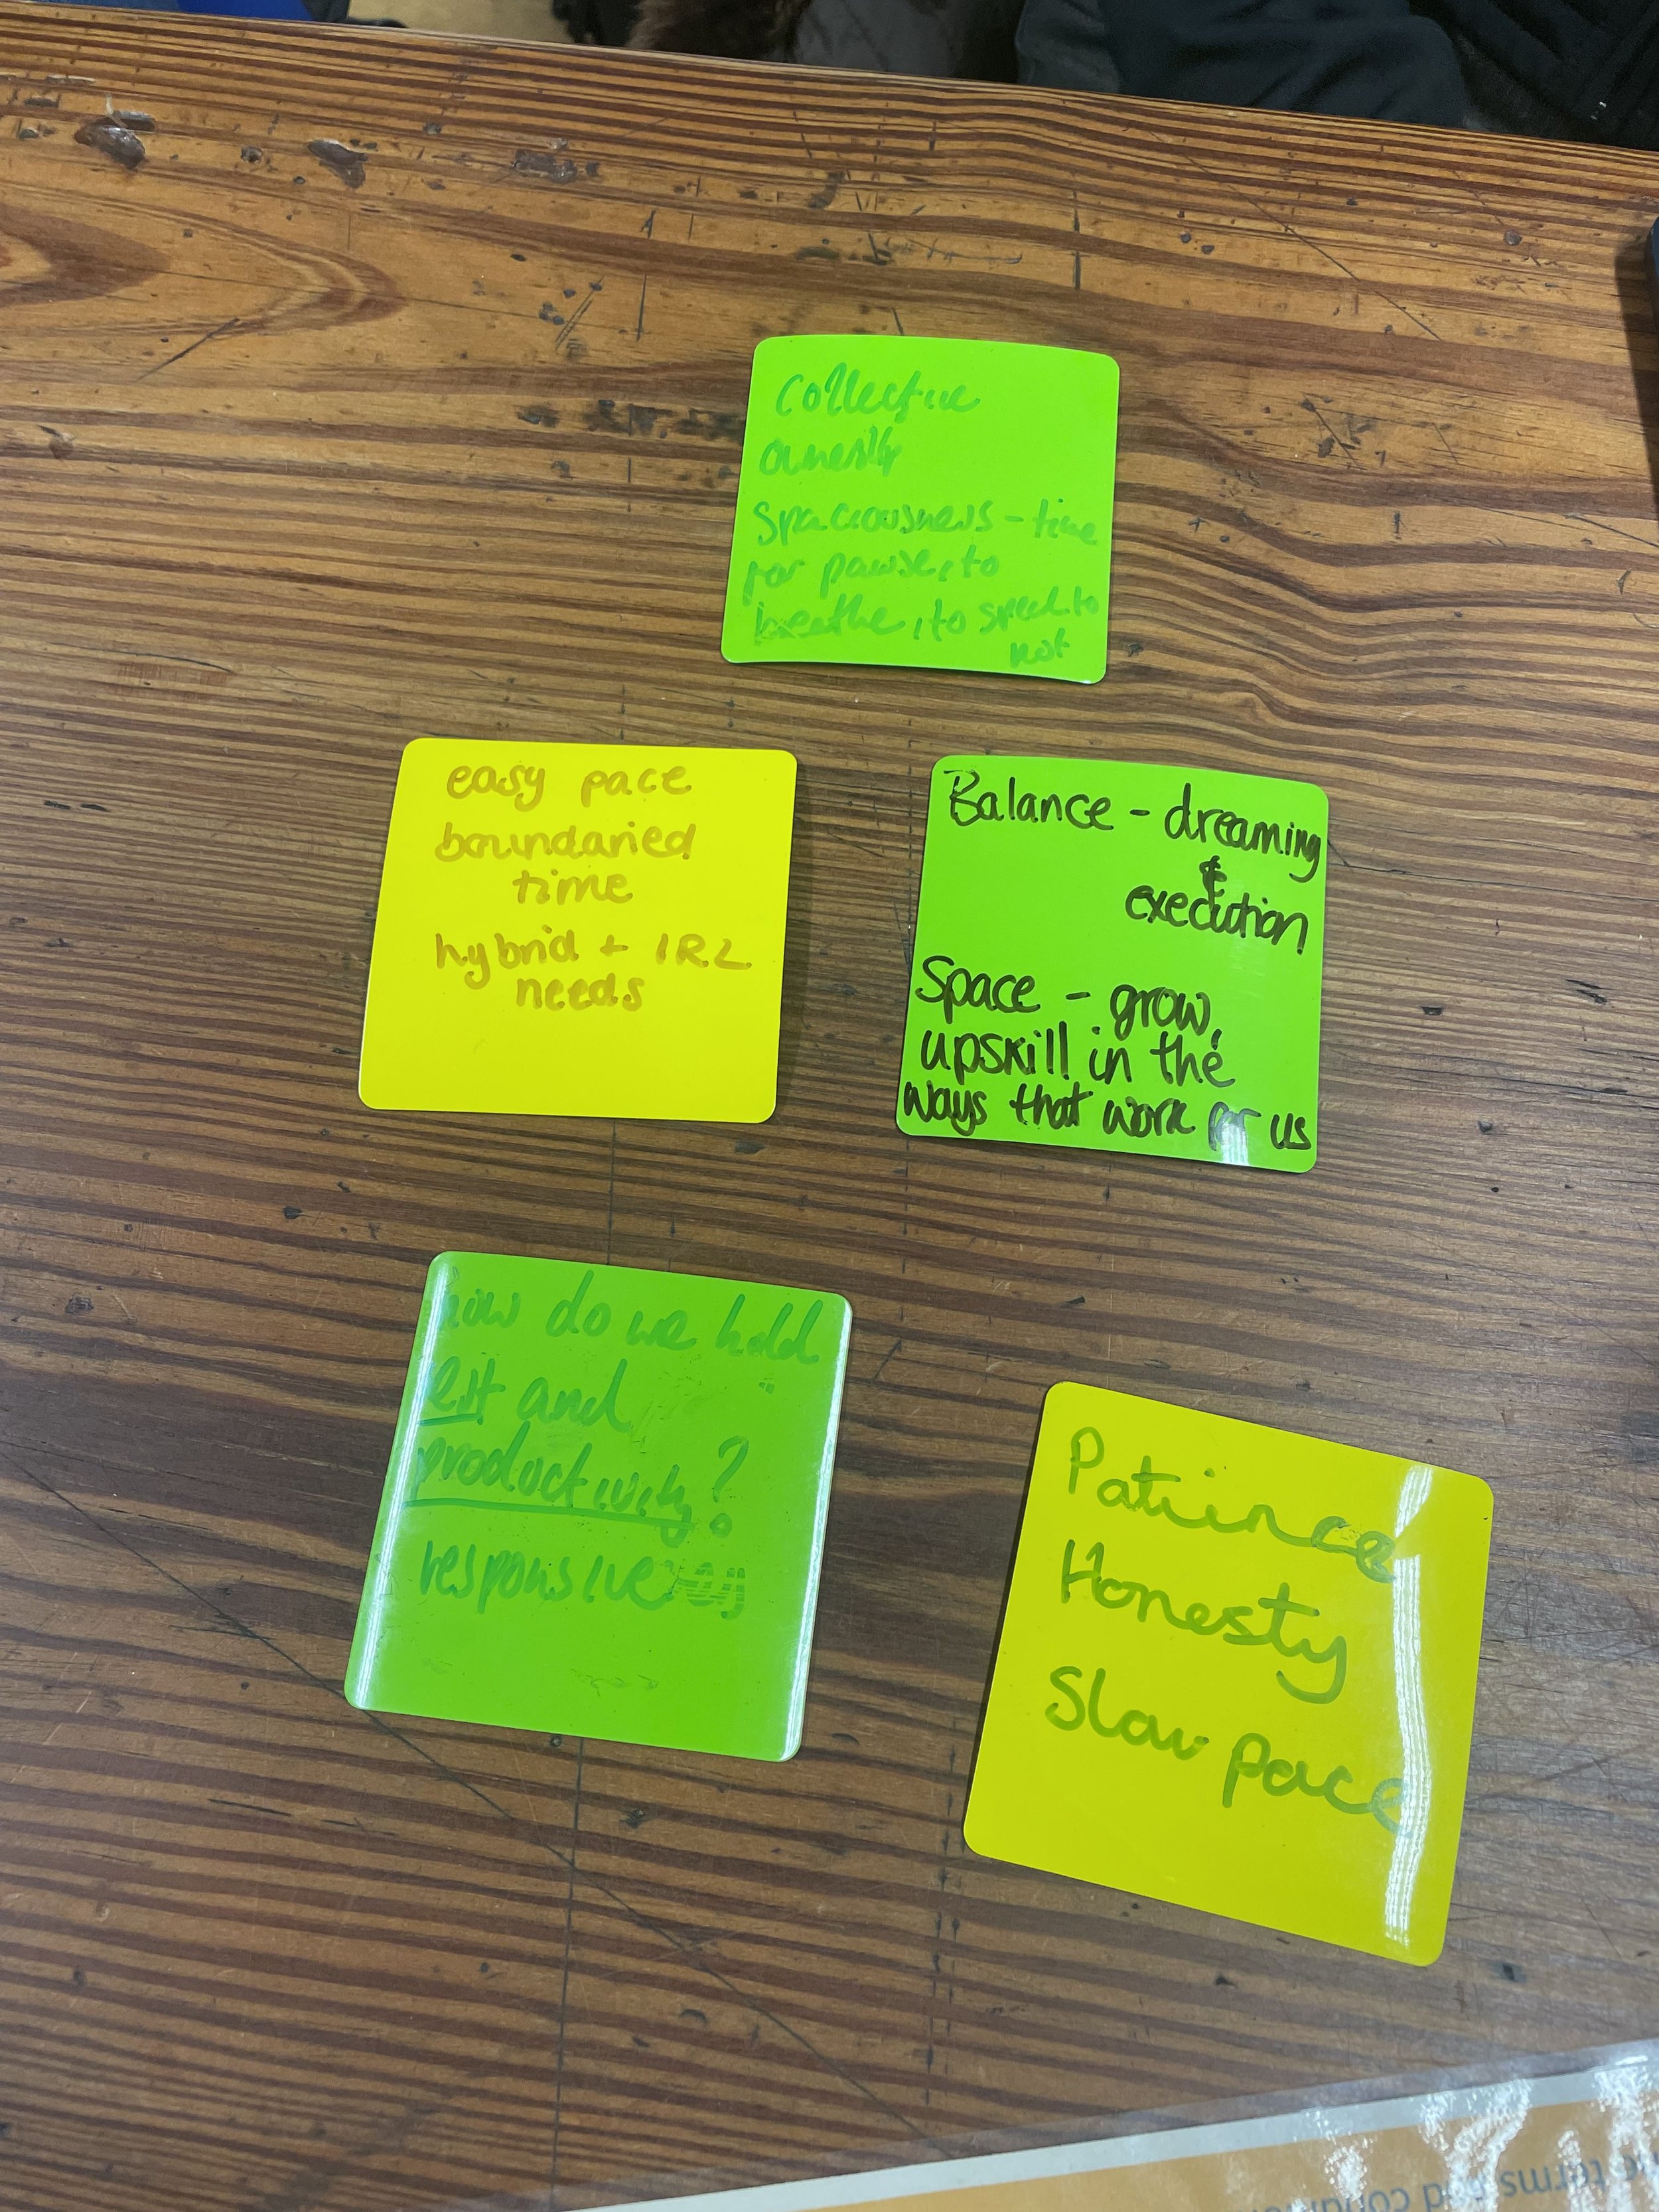 Collective
Spaciousness - time
for pause, to
breathe, to speed to
not
easy pace
boundaried
time
hybrid + IRL
needs
Balance - dreaming
&
execution
Space - grow,
upskill in the
ways that work for us
how do we hold
rest and
productivity?
responsive
Patience
Honesty
Slow pace
terms and